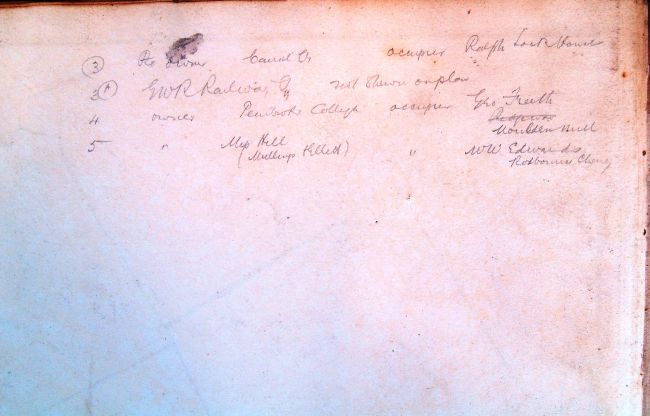 3 Re owner Canal Co occupier Ralph Lock House
3A GWR Railway Co not shewn on plan
4 owner Pembroke College occupier Geo Freeth
Moulden Mill
5 " Hill " WW Edwards
(Mullings Ellett) Rodbourne Cheney